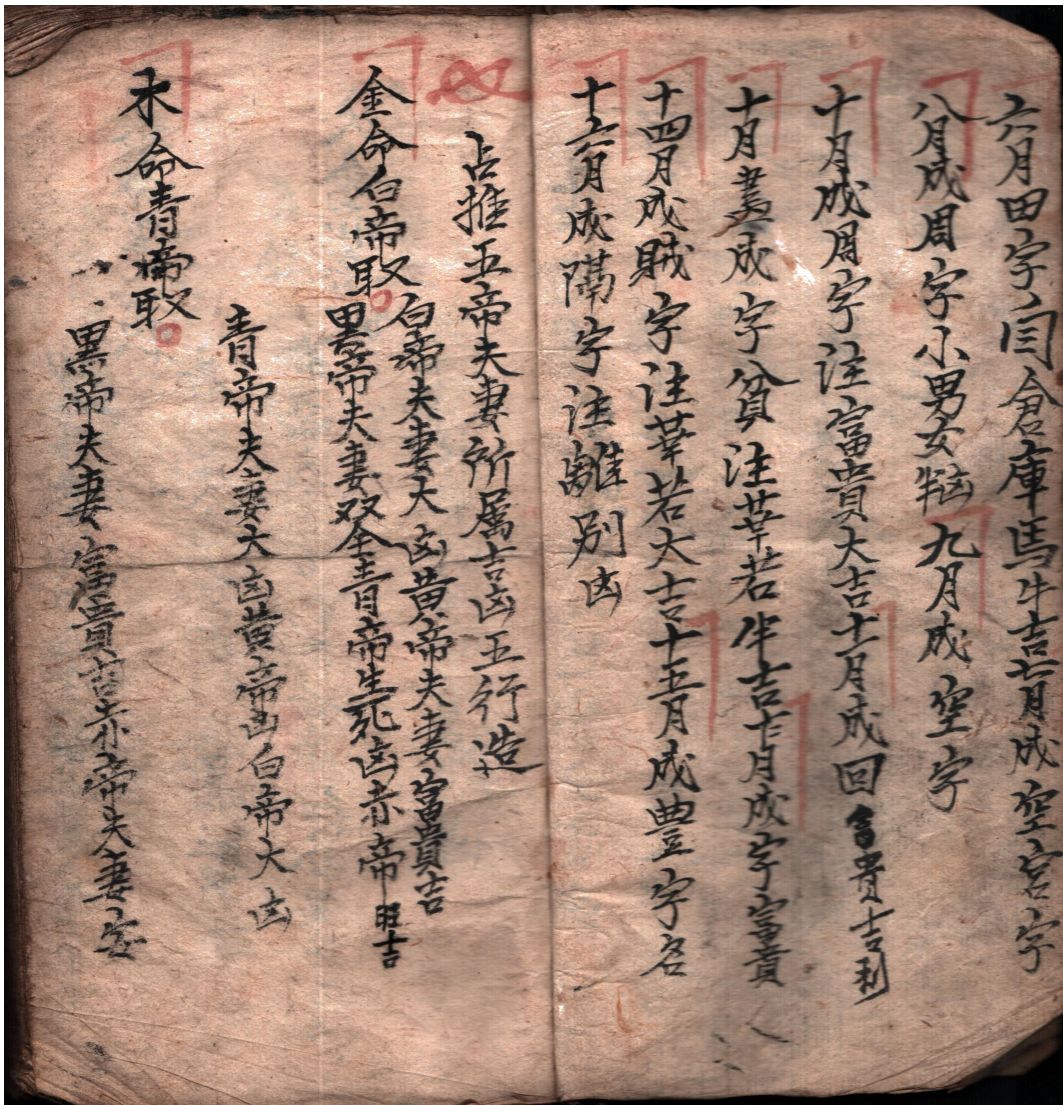 六月田字闩倉庫馬牛吉七月成空宫字
八月成周字小男女㤐九月成空字
十月成周字注富貴大吉十一月成回富貴吉利
十月盖成字貧注莘若牛吉十二月成字富貴
十四月成賊字注莘若大吉十五月成豊字名
十六月成隔字注離别凶
占推五帝夫妻所属吉凶五行造
金命白帝取
白帝夫妻大凶黄帝夫妻富貴吉
黑帝夫妻双全青帝生死凶赤帝旺吉
木命青帝取
青帝夫妻大凶黄帝凶白帝大凶
黑帝夫妻富貴吉赤帝夫妻安